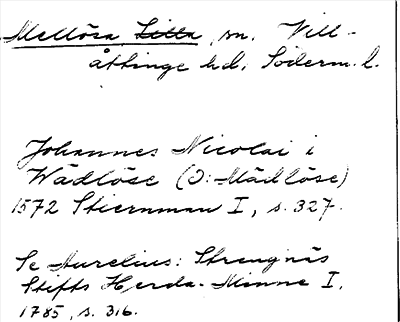 Mellösa Lilla, sn. Vill-
åttinge hd, Söderm. l.
Johannes Nicolai i
Wädlöse (ɔ: Mädlöse)
1572 Stiernman I, s. 327.
Se Aurelius: Strengnäs
Stifts Herda-Minne I,
1785, s. 316.